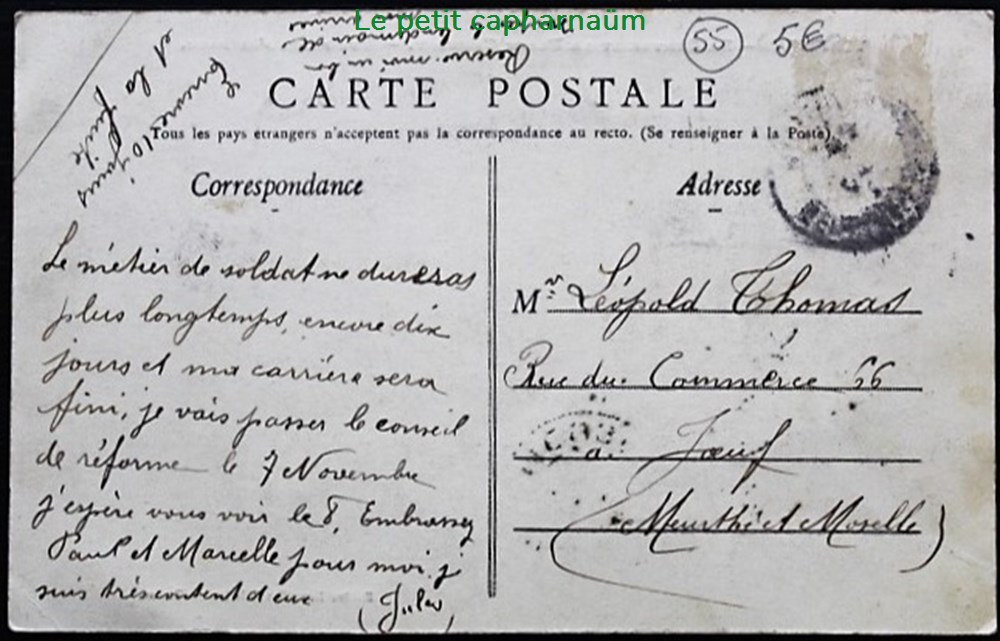 Le petit capharnaüm
55 5€
Encore 10 jours
et la fuite
CARTE POSTALE
Tous les pays etrangers n'acceptent pas la correspondance au recto. (Se renseigner à la Poste).
Correspondance
Le métier de soldat ne dureras
plus longtemps, encore dix
jours et ma carrière sera
fini, je vais passer le conseil
de réforme le 7 Novembre
j'espère vous voir le 8, Embrassez
Paul et Marcelle pour moi je
suis très content d eux
(Jules)
Adresse
Mr Léopold Thomas
Rue du Commerce 56
a Joeuf
(Meurthe et Moselle)